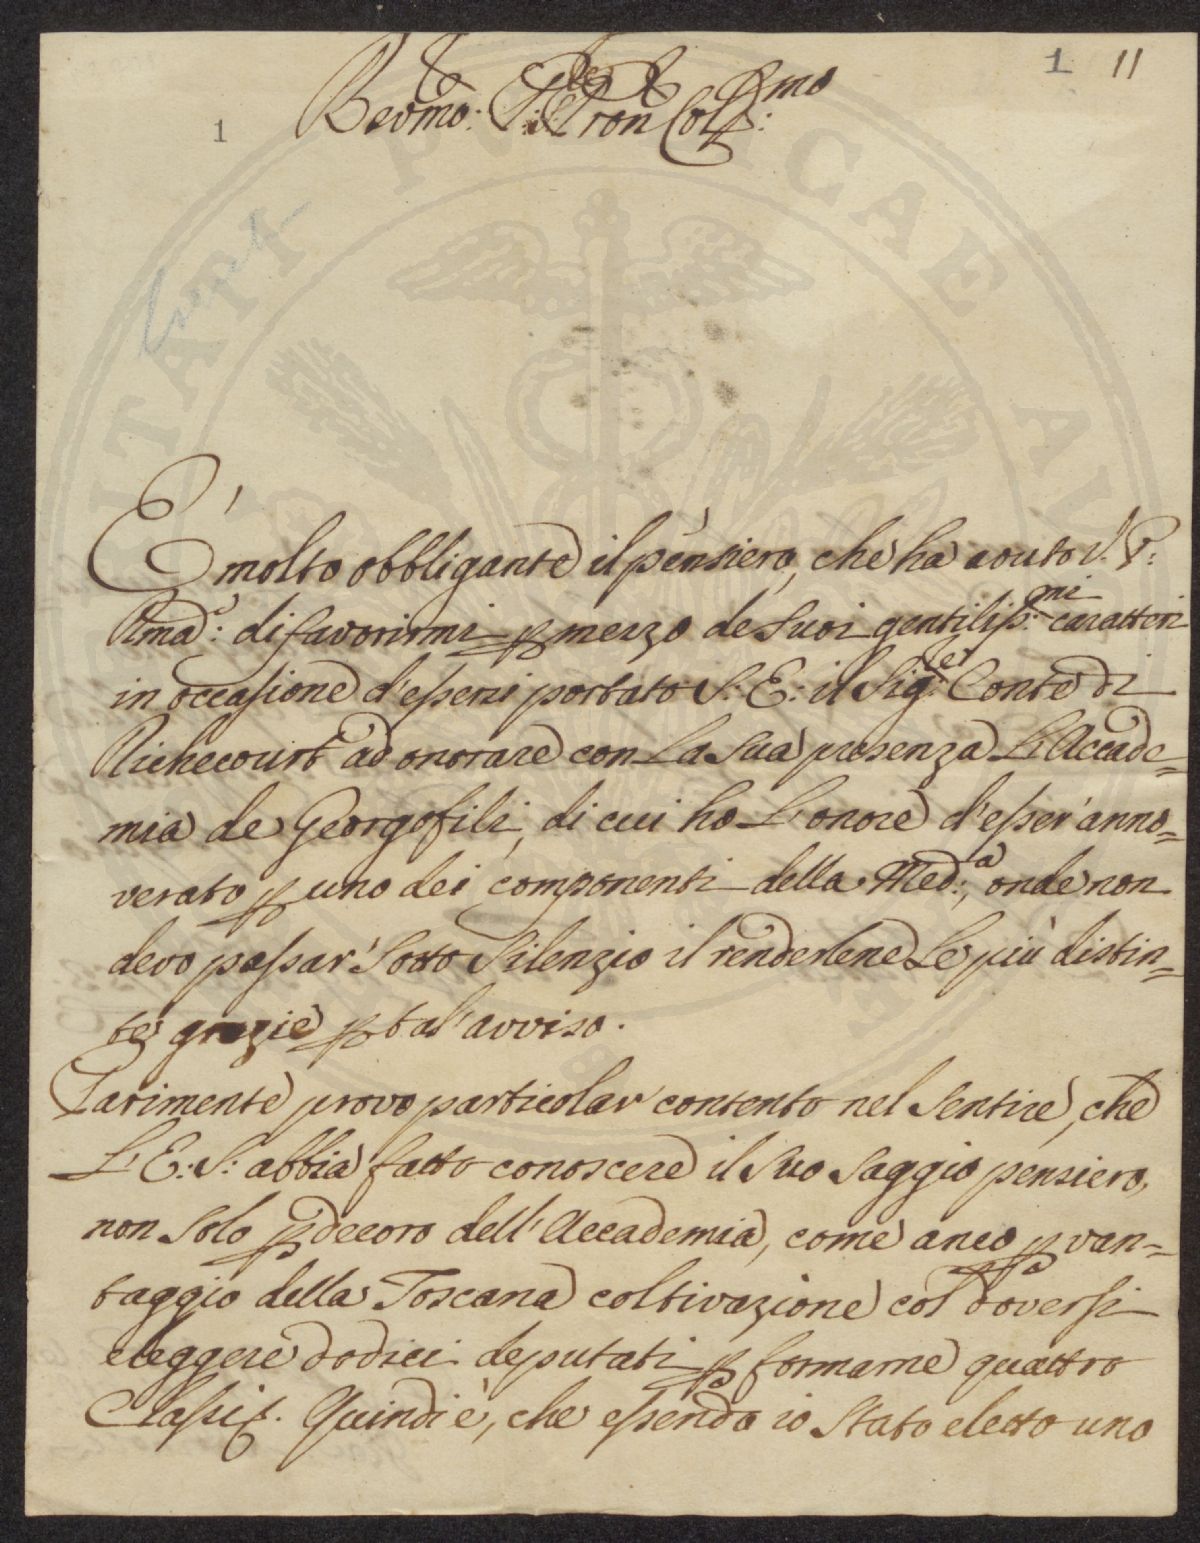 1 11
1
Revmo: P.re P.ron Col.mo:
È molto obbligante il pensiero, che ha avuto V. P.
Rma: di favorirmi p mezzo de suoi gentiliss:mi caratteri
in occasione d'essersi portato S: E: il Sig:re Conte di
Richecourt ad onorare con la sua presenza l'Accade=
mia de Georgofili, di cui ho l'onore d'esser anno=
verato p uno dei componenti della Med:a, onde non
devo passar sotto silenzio il renderlene le più distin=
te grazie p tal'avviso.
Parimente provo particolar contento nel sentire, che
l'E: S: abbia fatto conoscere il suo saggio pensiero,
non solo p decoro dell'Accademia, come anco p van=
taggio della Toscana coltivazione col doversi
eleggere dodici deputati p formarne quattro
Classi. Quindi è, che essendo io stato eletto uno
PUBLICAE